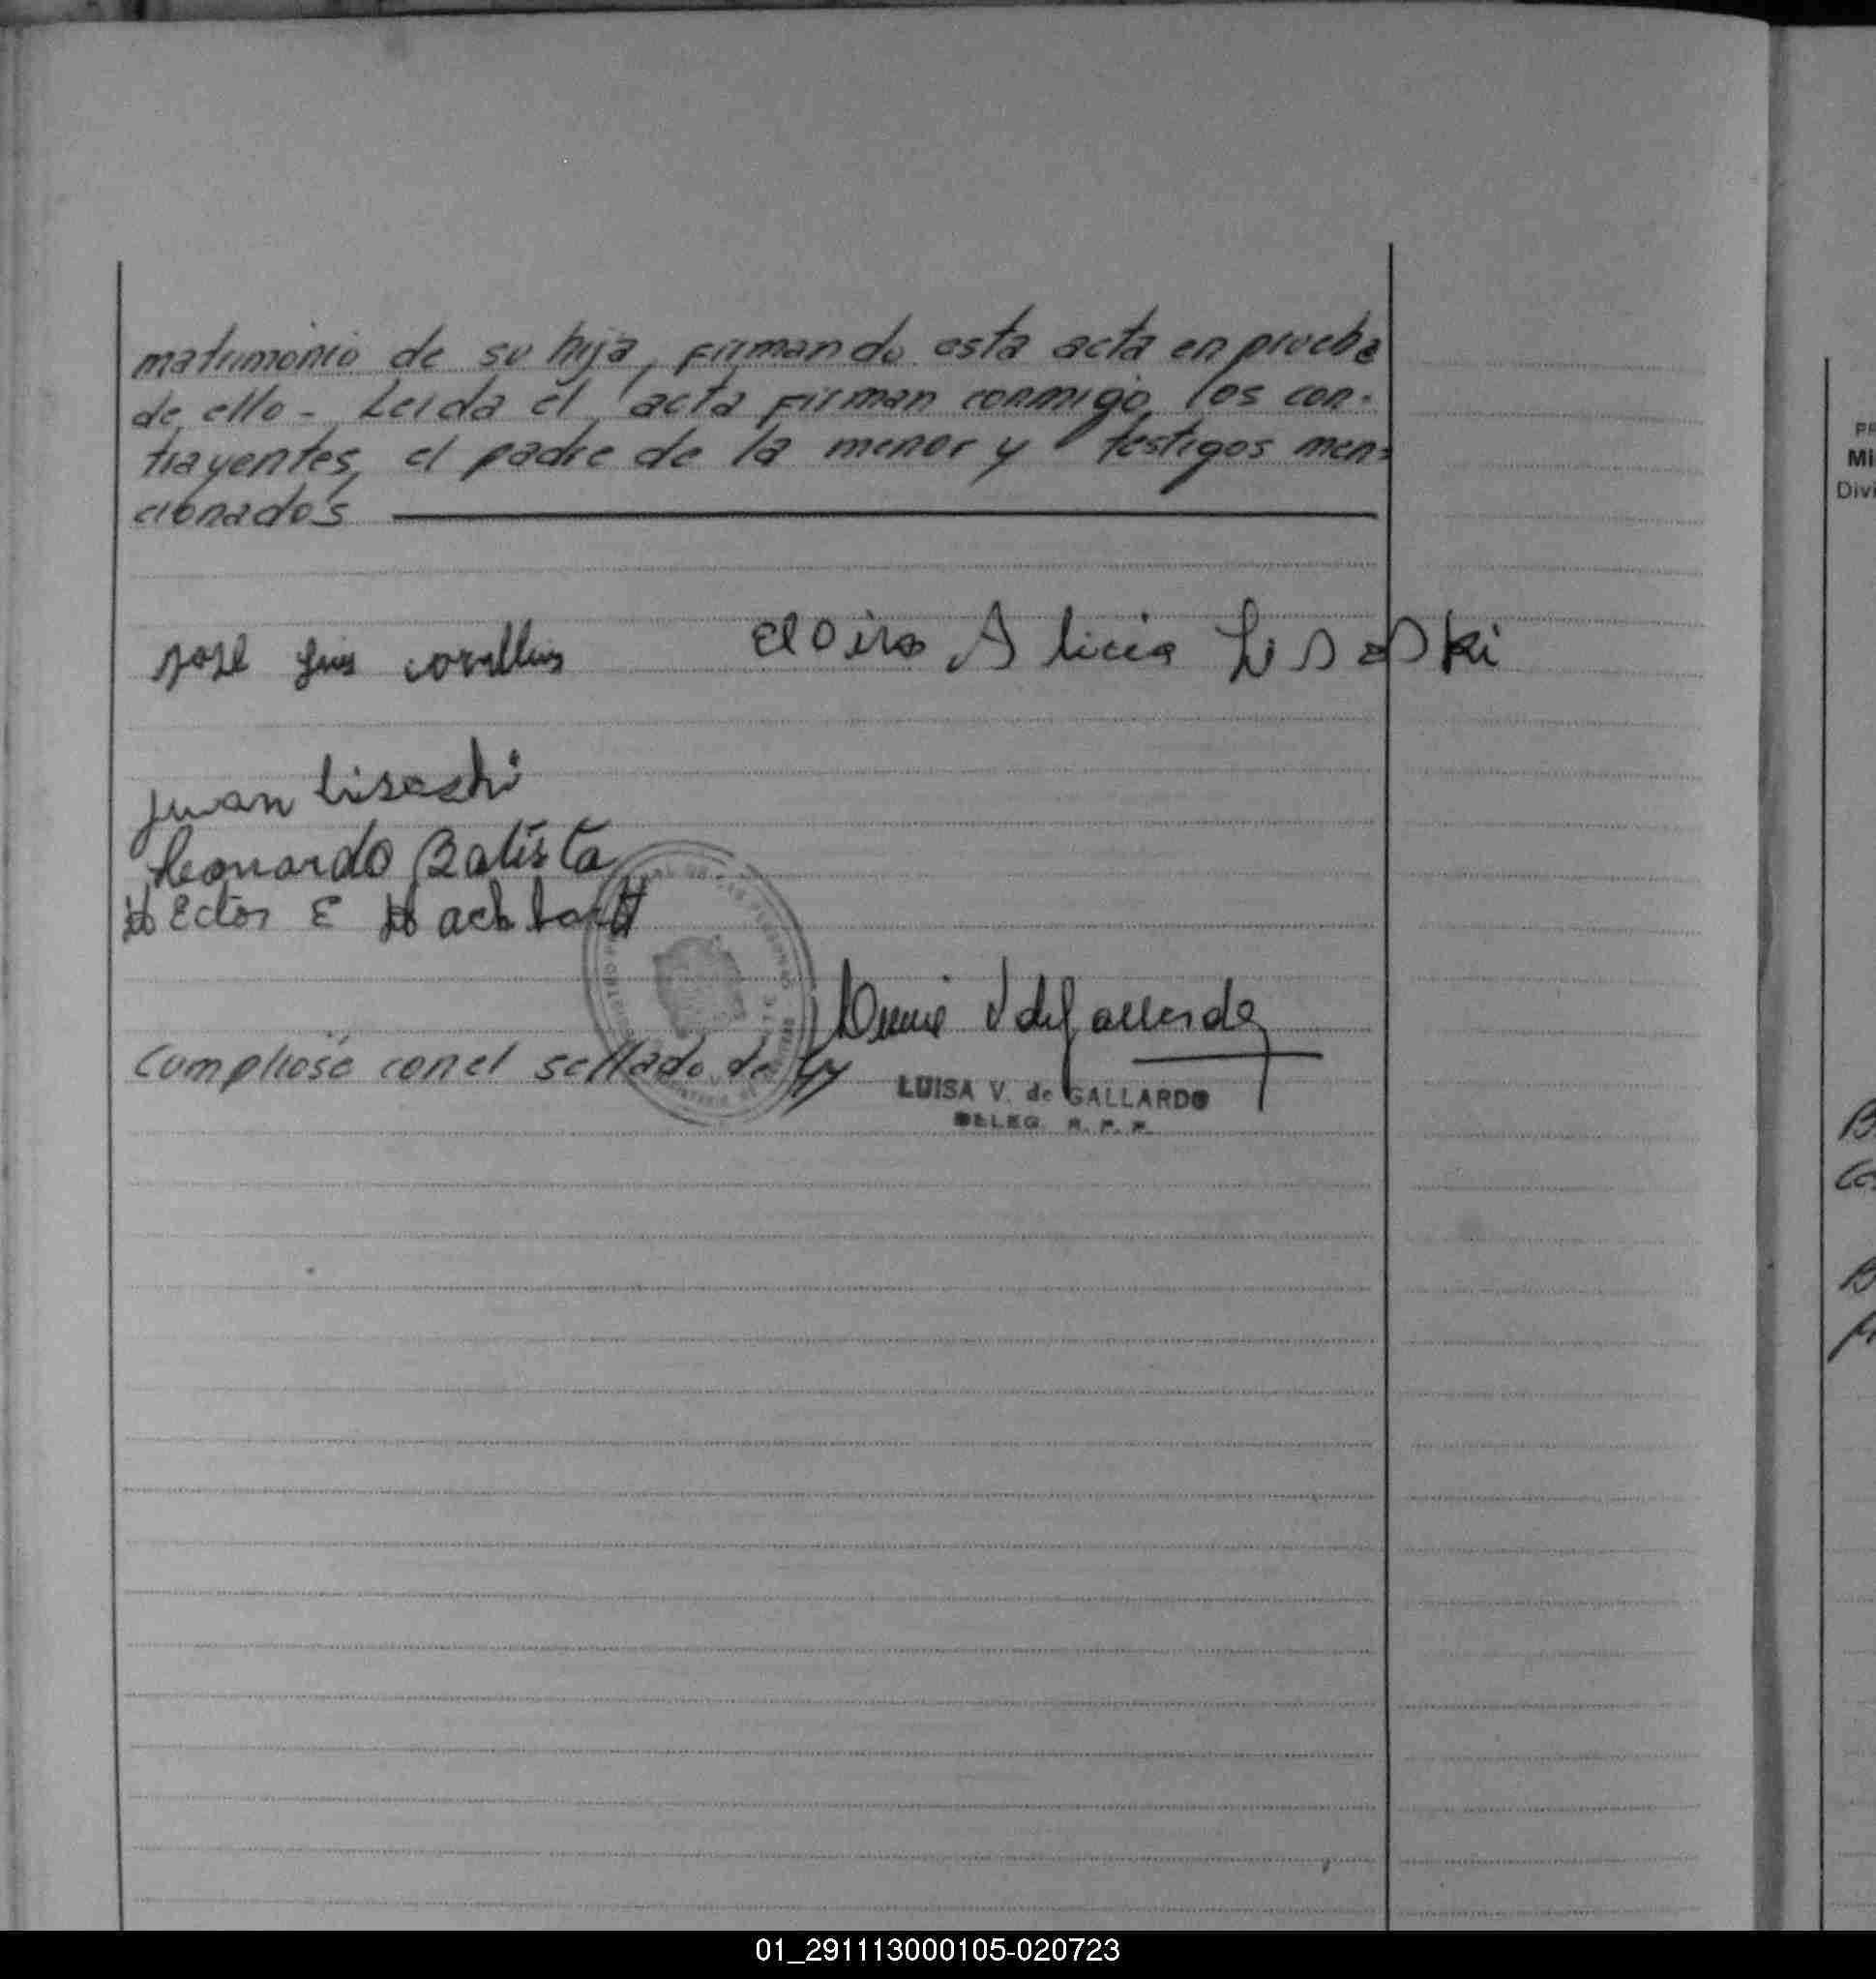 matrimonio de su hija, firmando esta acta en prueba
de ello - Leida el acta firman conmigo, los con-
trayentes, el padre de la menor y testigos men-
cionados
José Luis
Elvira Alicia Lisaski
Juan Lisaski
Leonardo Batista
Hector E
Cumpliose con el sellado de ley
LUISA V. de GALLARDO
DELEG. R. P. P.
PR
Mi
Divi
01_291113000105-020723